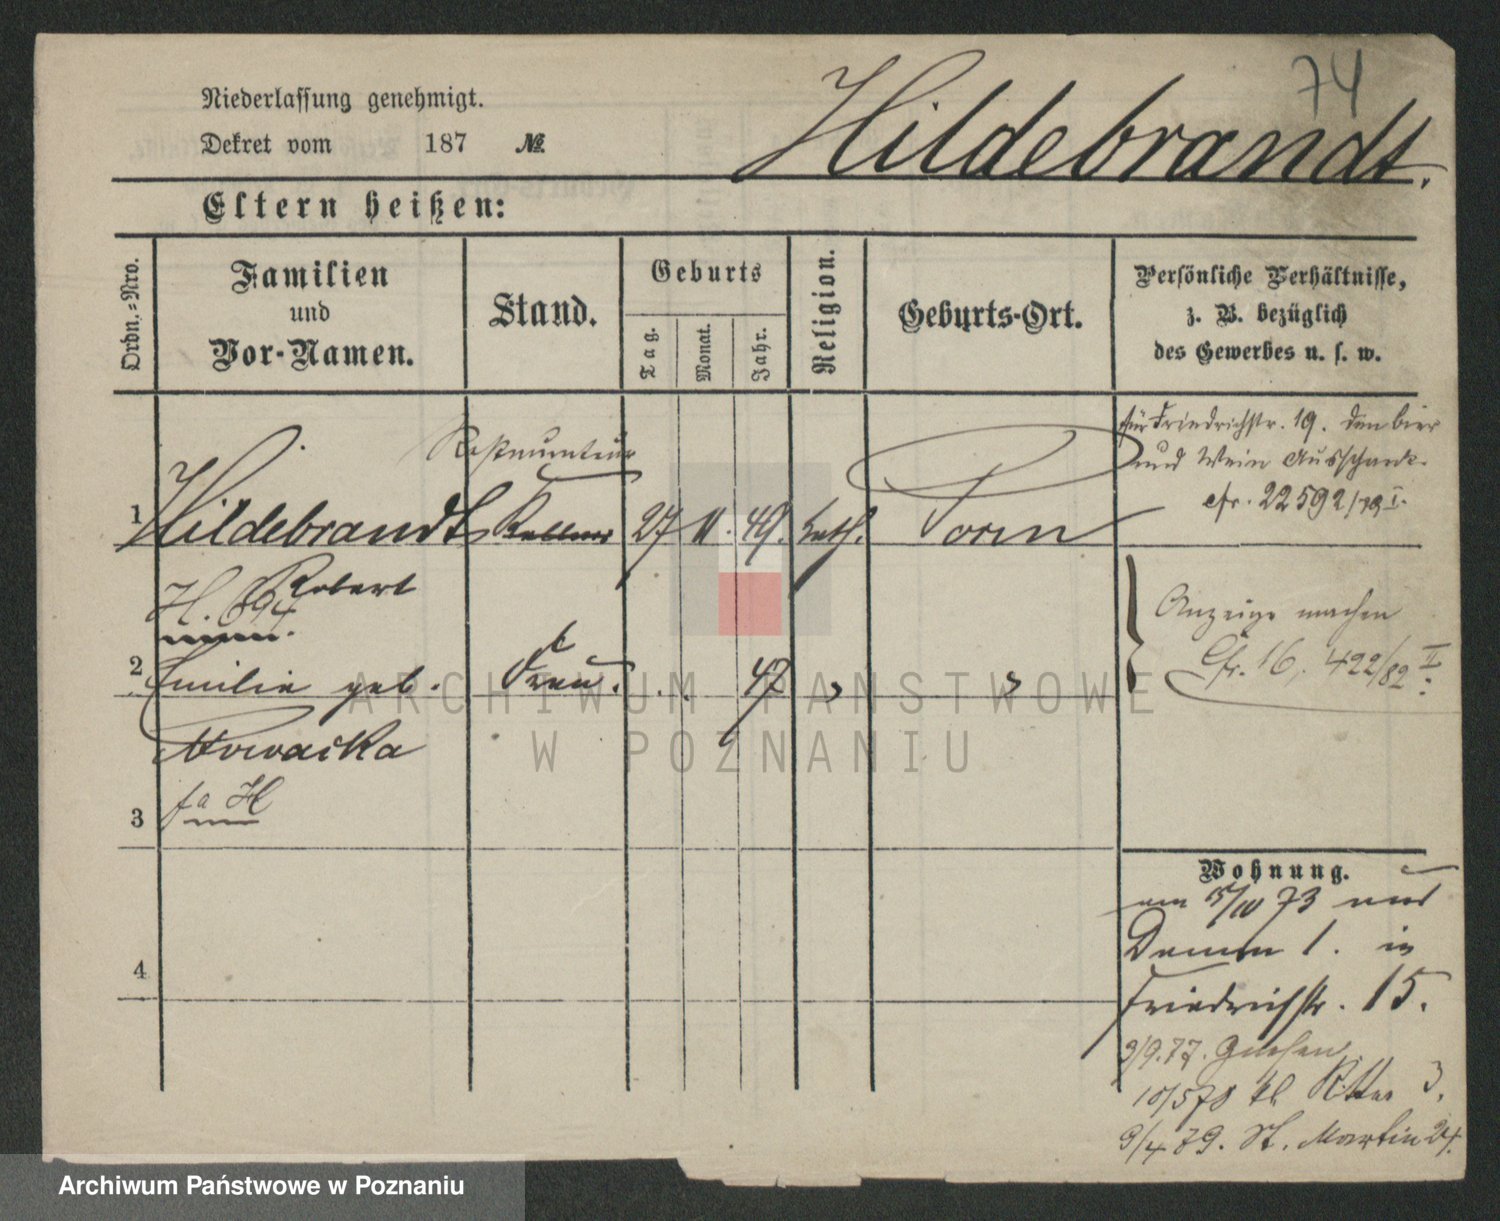 74
Niederlassung genehmigt.
Dekret vom 187 №
Hildebrandt.
Eltern heißen:
Ordn.-Nro.
Familien
und
Vor-Namen.
Stand.
Geburts
Tag.
Monat.
Jahr.
Religion.
Geburts-Ort.
Persönliche Verhältnisse,
z. B. bezüglich
des Gewerbes u. s. w.
für Friedrichstr. 19. den bier
und Wein Ausschank.
cfr. 22592/79 I.
Restaurateur
1 Hildebrandt Kellner 27 11. 49. kath. Posen
Robert
H. 694
Anzeige machen
Cfr. 16, 422/82 II
2 Emilie geb. Frau. 47 "
Nowacka
fa H
3
4
Wohnung.
am 5/10 73 aus
Damm 1. in
Friedrichstr. 15.
9/9.77. Gnesen
10/5 78 kl Ritter 3.
9/4 79. St. Martin 24.
ARCHIWUM PAŃSTWOWE
W POZNANIU
Archiwum Państwowe w Poznaniu